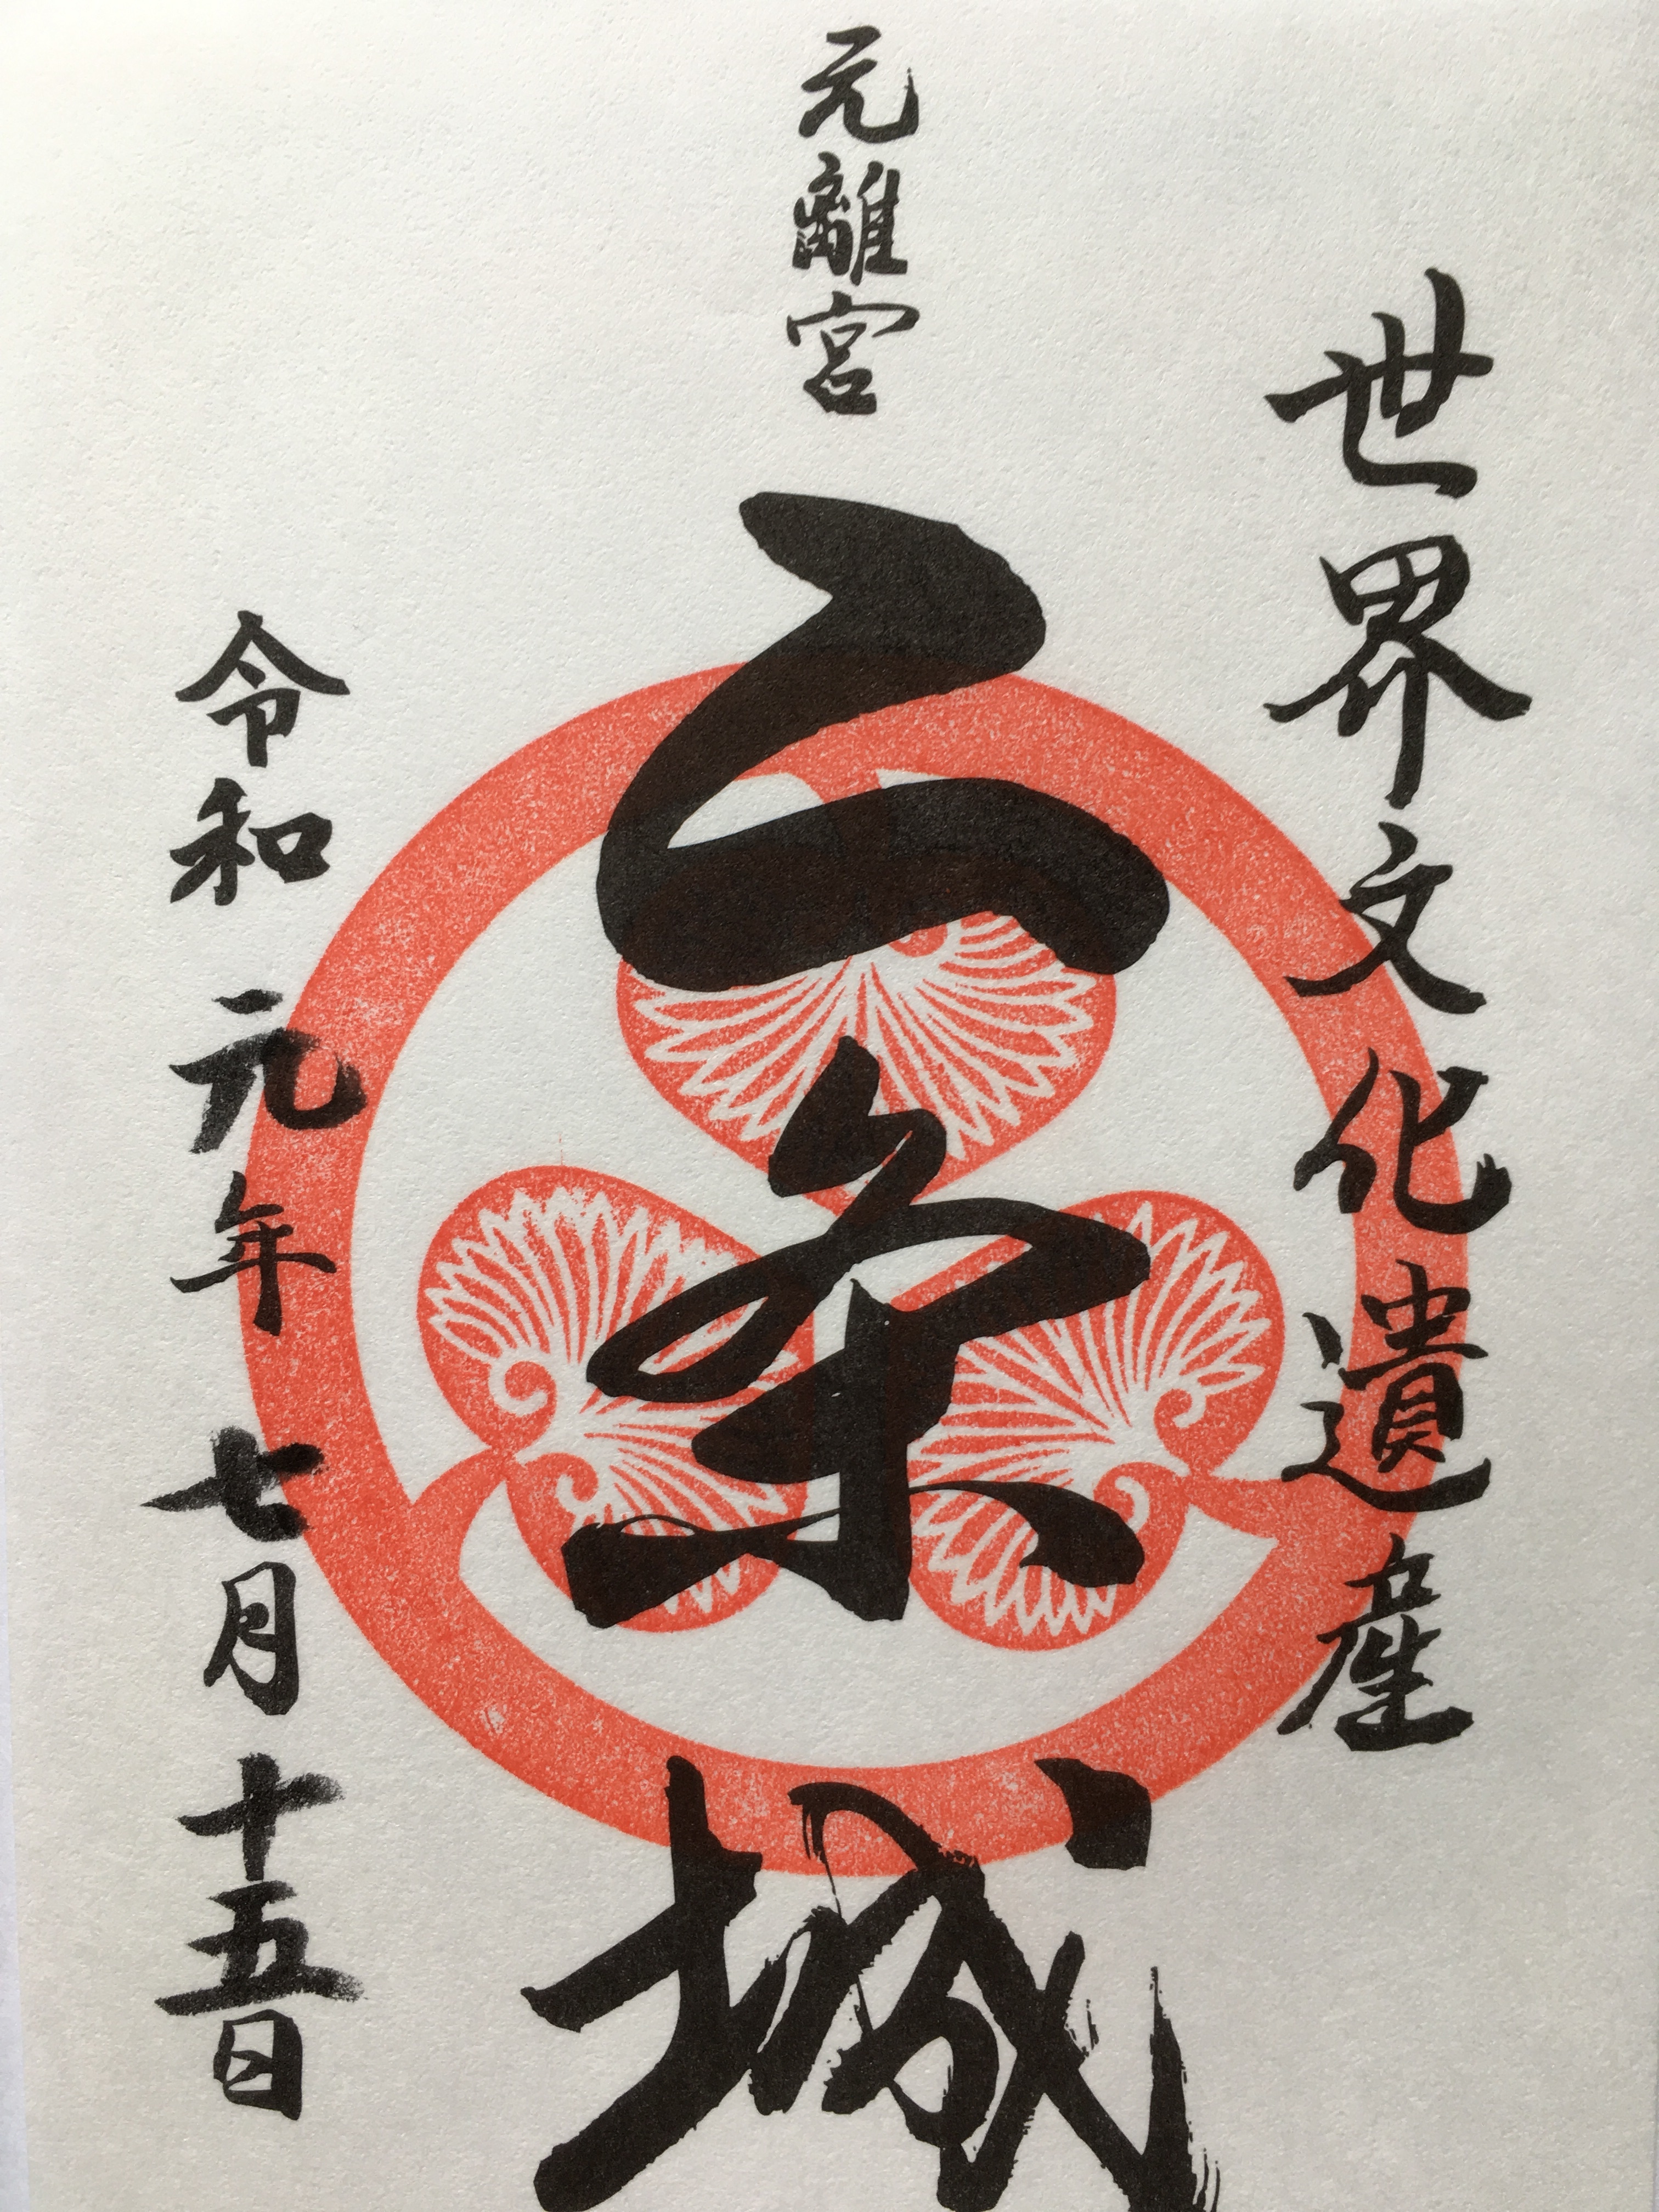 世界文化遺産
元離宮
二条城
令和元年七月十五日